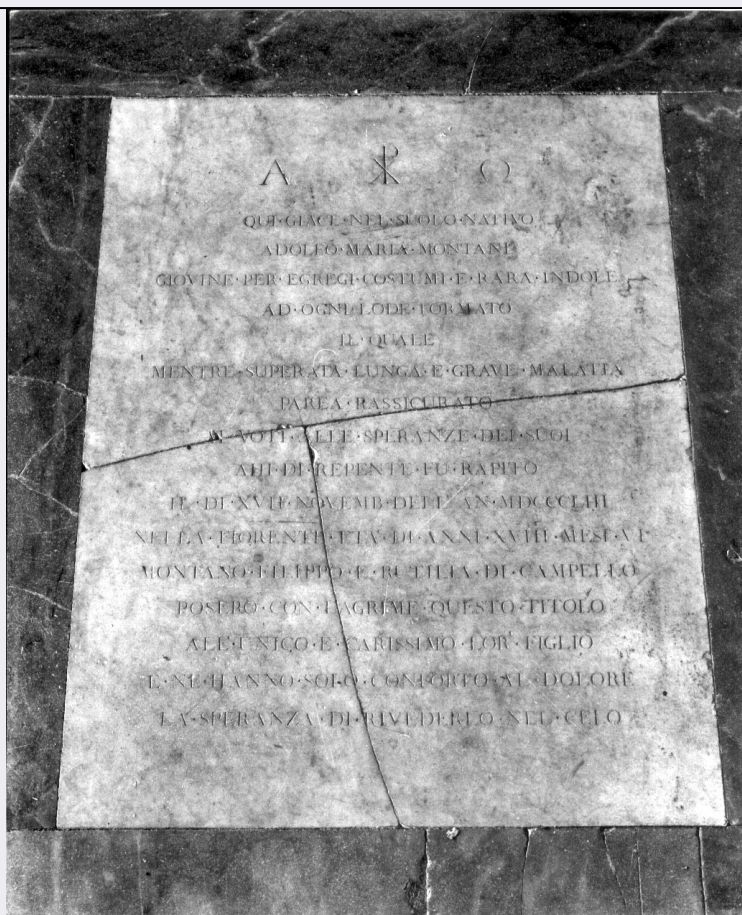 Α ☧ Ω
QUI·GIACE·NEL·SUOLO·NATIVO
ADOLFO·MARIA·MONTANI
GIOVINE·PER·EGREGI·COSTUMI·E·RARA·INDOLE
AD·OGNI·LODE·FORMATO
IL·QUALE
MENTRE·SUPERATA·LUNGA·E·GRAVE·MALATTIA
PAREA·RASSICURATO
AI·VOTI·ALLE·SPERANZE·DEI·SUOI
AHI·DI·REPENTE·FU·RAPITO
IL·DI·XVII·NOVEMB·DELL'AN·MDCCCLIII
NELLA·FIORENTE·ETA·DI·ANNI·XVIII·MESI·VI
MONTANO·FILIPPO·E·RUTILIA·DI·CAMPELLO
POSERO·CON·LAGRIME·QUESTO·TITOLO
ALL'UNICO·E·CARISSIMO·LOR·FIGLIO
E·NE·HANNO·SOLO·CONFORTO·AL·DOLORE
LA·SPERANZA·DI·RIVEDERLO·NEL·CELO